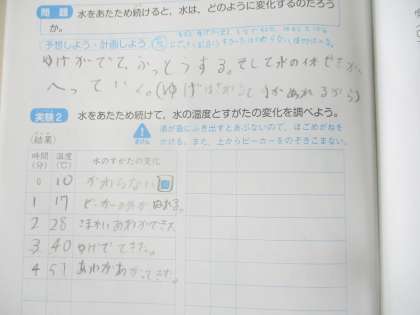 問題 水をあたため続けると、水は、どのように変化するのだろう
か。
予想しよう・計画しよう
ゆげがでて、ふっとうする。そして水の体せきが
へっていく。(ゆげ
実験2 水をあたため続けて、水の温度とすがたの変化を調べよう。
湯が急にふき出すとあぶないので、ほごめがねを
かける。また、上からビーカーをのぞきこまない。
(結果)
時間(分) 温度(℃) 水のすがたの変化
0 10 かわらない
1 17 ビーカーの外がぬれる。
2 28 こまかいあわがでてきた
3 40 ゆげがでてきた。
4 51 あわがあがってきた。